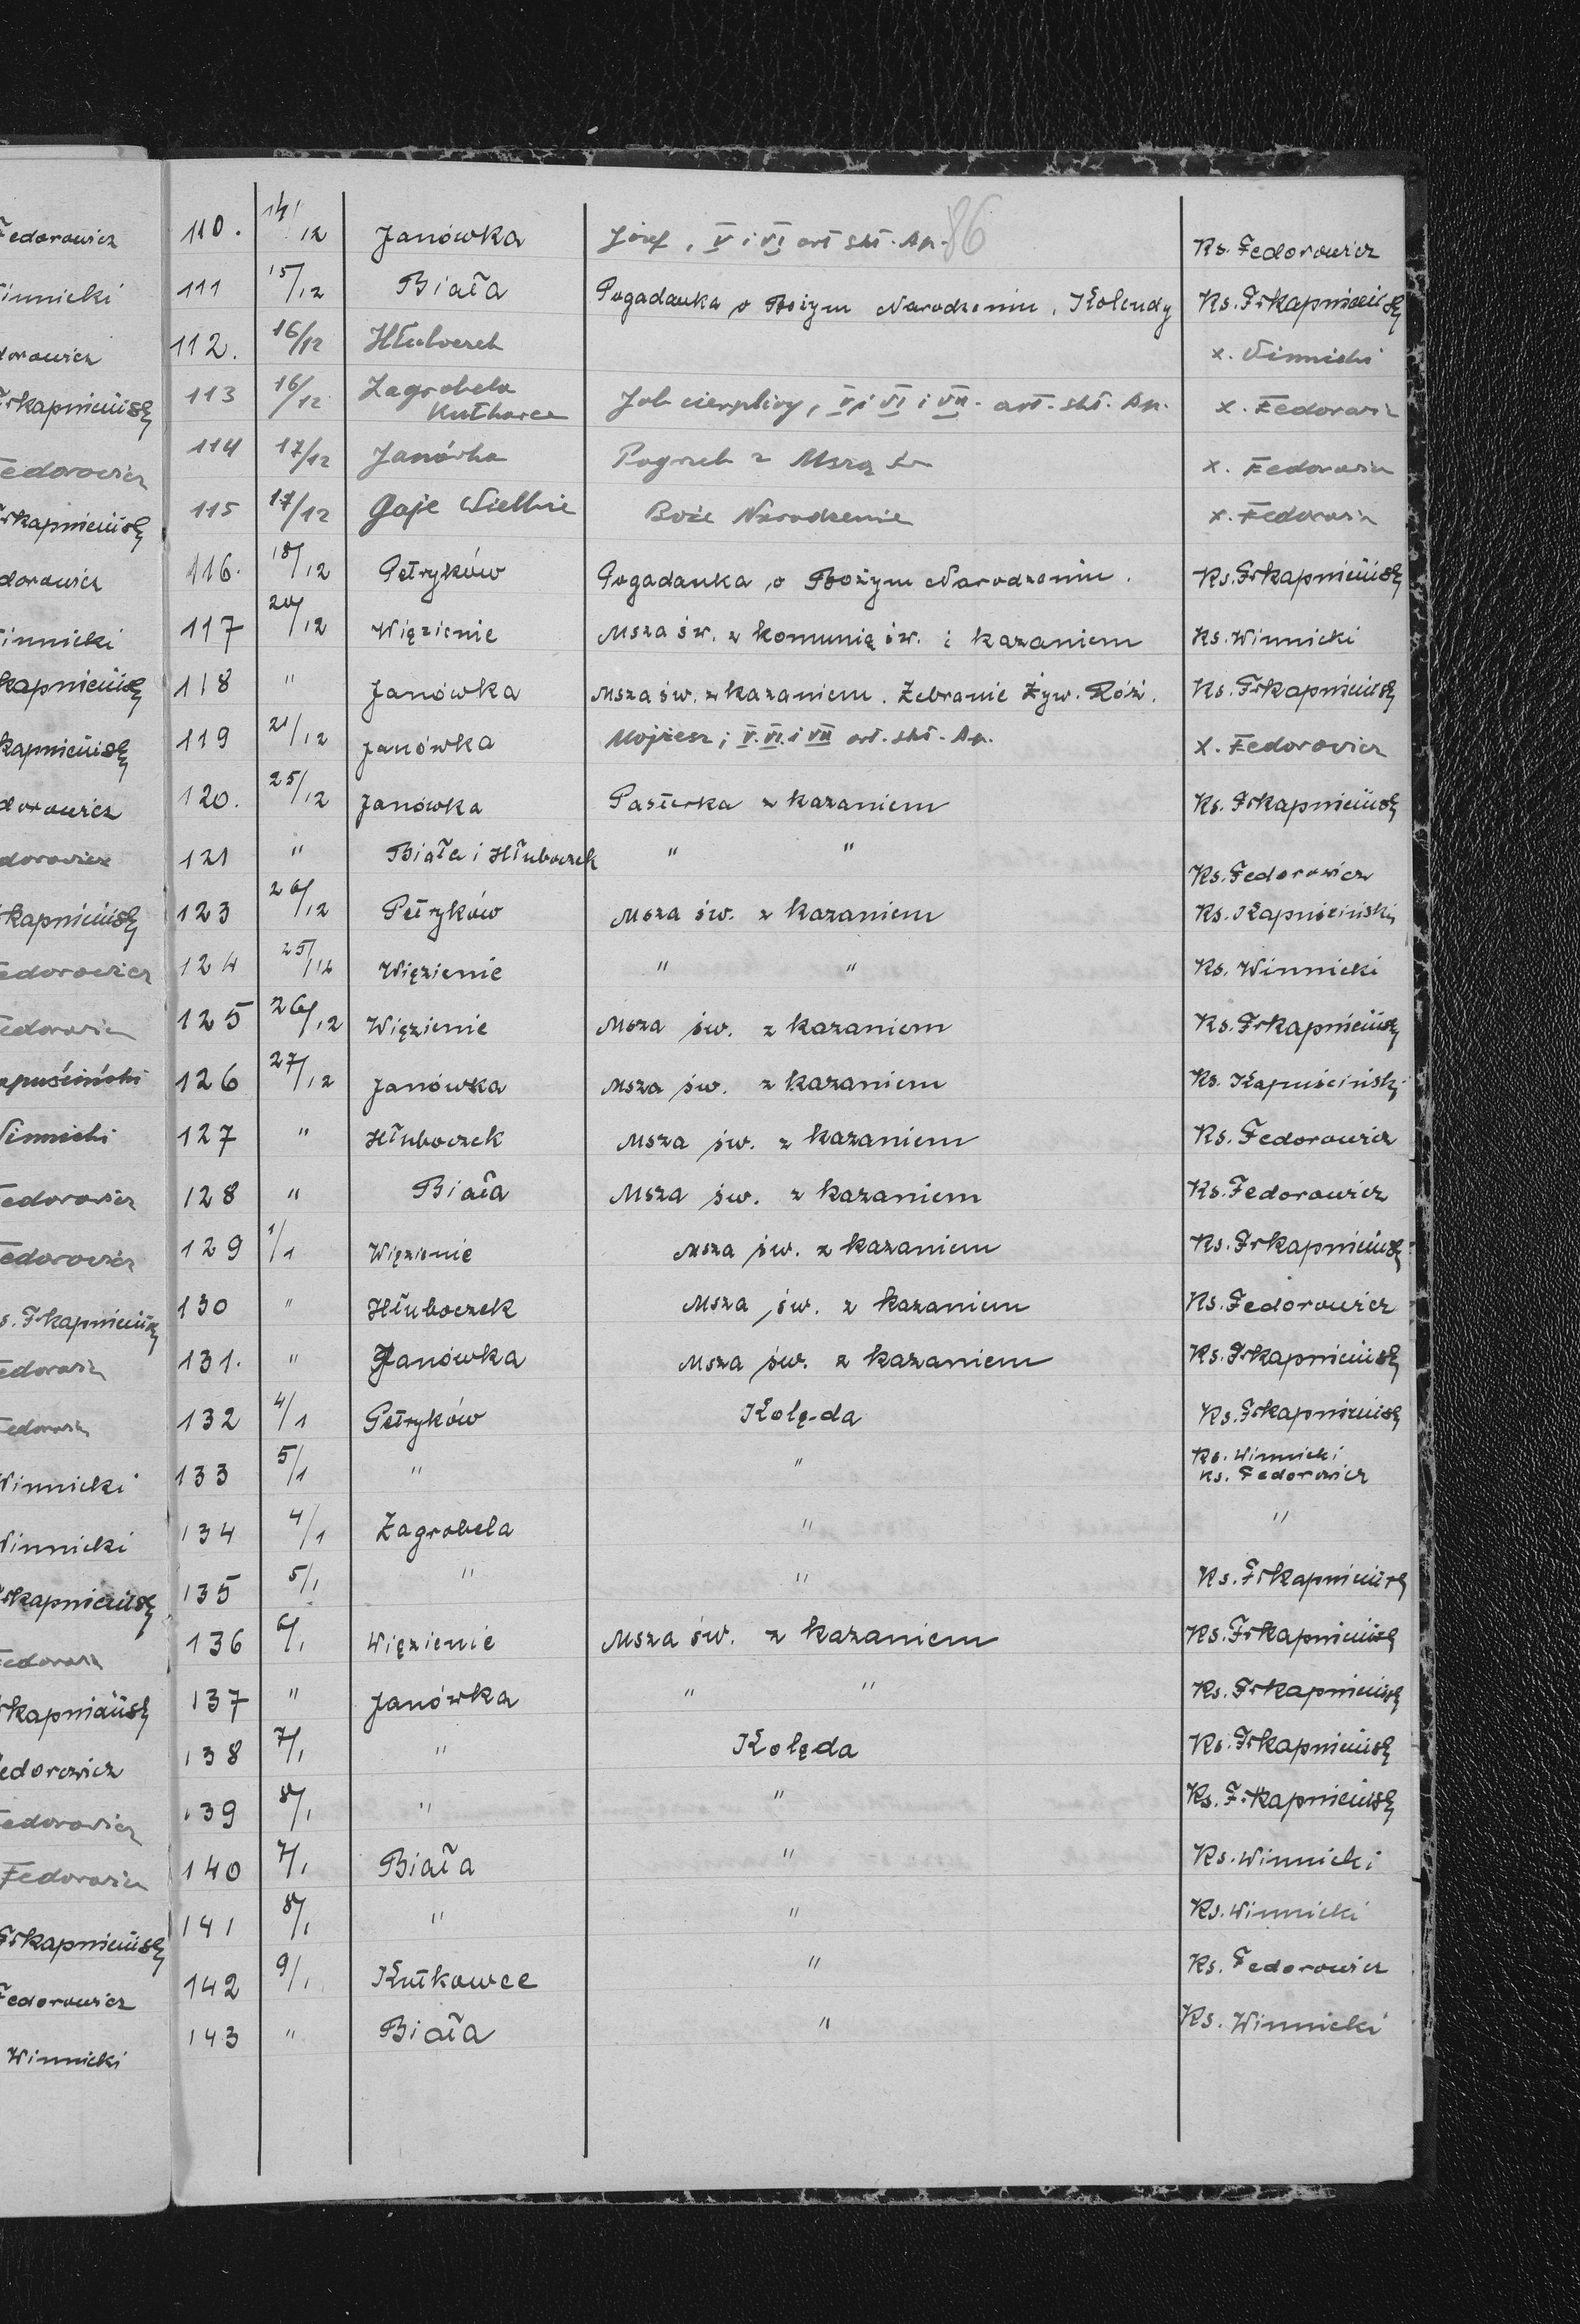 86
110. 14/12 Janówka Józef, V i VI art skł. Ap. Ks. Fedorowicz
111 15/12 Biała Pogadanka o Bożym Narodzeniu, Kolendy Ks. Fr Kapuściński
112. 16/12 Hłuboczek x. Winnicki
113 16/12 Zagrobela
Kutkowce Job cierpliwy, V i VI i VII. art. skł. Ap. x. Fedorowicz
114 17/12 Janówka Pogrzeb z Mszą św x. Fedorowicz
115 17/12 Gaje Wielkie Boże Narodzenie x. Fedorowicz
116. 18/12 Petryków Pogadanka o Bożym Narodzeniu. Ks. Fr Kapuściński
117 20/12 Więzienie Msza św. z komunią św. i kazaniem Ks. Winnicki
118 " Janówka Msza św. z kazaniem. Zebranie Żyw. Róż. Ks. Fr Kapuściński
119 21/12 Janówka Mojżesz; V. VI. i VII art. skł. Ap. x. Fedorowicz
120. 25/12 Janówka Pasterka z kazaniem Ks. Fr Kapuściński
121 " Biała i Hłuboczek " " Ks. Fedorowicz
123 26/12 Petryków Msza św. z kazaniem Ks. Kapuściński
124 25/12 Więzienie " " Ks. Winnicki
125 26/12 Więzienie Msza św. z kazaniem Ks. Fr Kapuściński
126 27/12 Janówka Msza św. z kazaniem Ks. Kapuściński
127 " Hłuboczek Msza św. z kazaniem Ks. Fedorowicz
128 " Biała Msza św. z kazaniem Ks. Fedorowicz
129 1/1 Więzienie Msza św. z kazaniem Ks. Fr Kapuściński
130 " Hłuboczek Msza św. z kazaniem Ks. Fedorowicz
131. " Janówka Msza św. z kazaniem Ks. Fr Kapuściński
132 4/1 Petryków Kolęda Ks. Fr Kapuściński
133 5/1 " " Ks. Winnicki
Ks. Fedorowicz
134 4/1 Zagrobela " "
135 5/1 " " Ks. Fr Kapuściński
136 6/1 Więzienie Msza św. z kazaniem Ks. Fr Kapuściński
137 " Janówka " " Ks. Fr Kapuściński
138 7/1 " Kolęda Ks. Fr Kapuściński
139 8/1 " " Ks. Fr Kapuściński
140 7/1 Biała " Ks. Winnicki
141 8/1 " " Ks. Winnicki
142 9/1 Kutkowce " Ks. Fedorowicz
143 " Biała " Ks. Winnicki